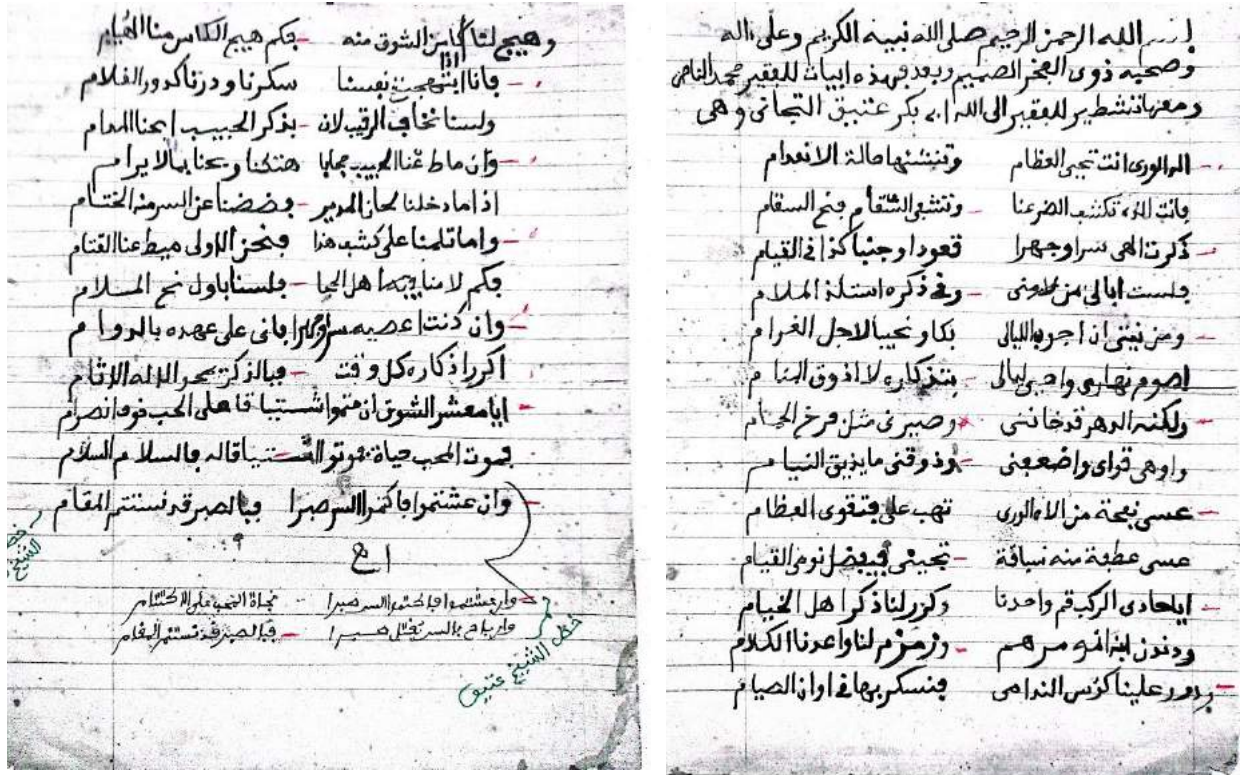 بسم الله الرحمن الرحيم صلى الله نبيه الكريم وعلى اله
وصحبه ذوى الفخر الصميم وبعد فهذه ابيات للفقير محمد الناصر
ومعها تشطير للفقير الى الله ابى بكر عتيق التجانى وهى
اله الورى انت تحيى العظام وتنشئها حالة الانعدام
فانت الذى تكشف الضر عنا وتشفى السقام
ذكرت الهى سرا وجهرا قعودا وجنبا كذا فى القيام
فلست ابالى من لامنى وفى ذكره استلذ الملام
ومن نيتى ان اجوب الليالى بكا ونحيبا لاجل الغرام
اصوم نهارى واحيى ليالى بتذكاره لا اذوق المنام
ولكنه الدهر قد خاننى وصيرنى مثل فرخ الحمام
واوهى قواى واضعفنى وذوقنى ما يذيق
عسى نفحة من الاه الورى تهب على فتقوى العظام
عسى عطفة منه تحيينى
ايا حادى الركب قم واحدنا وكرر لنا ذكر اهل الخيام
ودندن وزمزم لنا واعد نا الكلام
ودور علينا كؤس الندامى فنسكر بها فى اوان الصيام
وهيج لنا كاس الشوق منه فكم هيج الكاس منا الهيام
فانا اذا نفسنا سكرنا ودرنا كدور الغلام
ولسنا نخاف الرقيب لان بذكر الحبيب ابحنا المدام
وان ماط عنا الحبيب حجابا هتكنا وبحنا بما لا يرام
اذا ما دخلنا لحان المدير فضضنا عن السر منه الختام
واما تلمنا على كشف هذا فنحن الاولى ميط عنا القتام
فكم لامنا فيه اهل الحجا فلسنا باول نحى المسلام
وان كنت اعصيه سرا وجهرا فانى على عهده بالدوام
اكرر اذكاره كل وقت فبالذكر يمحو الاله الاثام
ايا معشر الشوق ان متموا اشتياقا على الحب فوه انصرام
فموت المحب حياة
وان عشتموا فاكتموا السر صبرا فبالصبر قد نستتم المقام
اح
وان عشتموا فاكتموا السر صبرا نجاة المحب على الاكتتام
وان باح بالسر يقتل صبرا فبالصبر قد نستتم المقام
خط الشيخ عتيق
خط
الشيخ